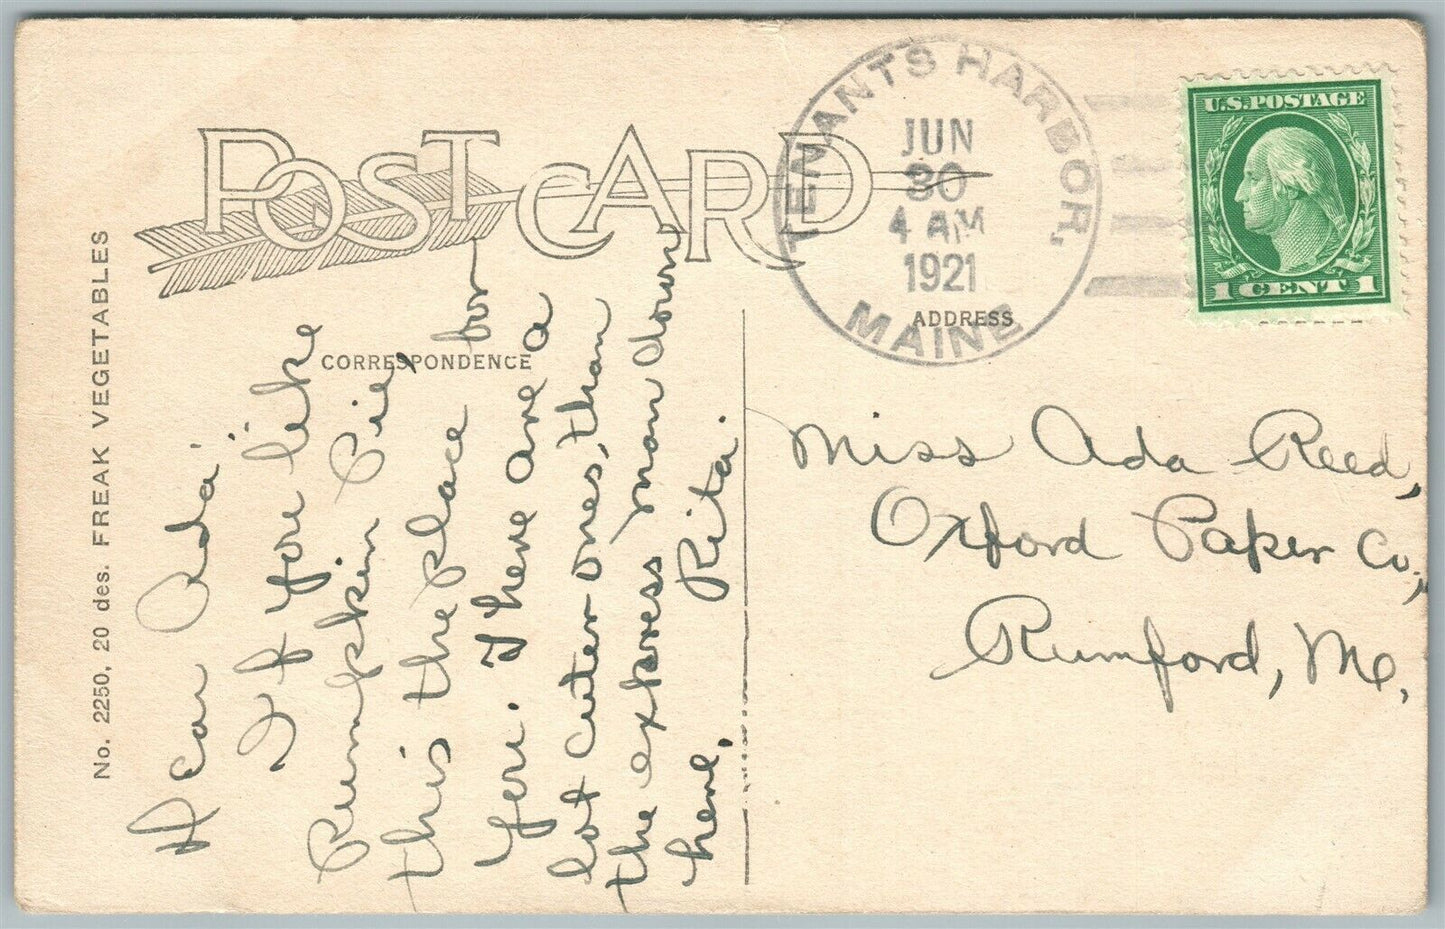 POST CARD
TENANTS HARBOR,
JUN
30
4 AM
1921
MAINE
U.S. POSTAGE
1 CENT 1
No. 2250, 20 des. FREAK VEGETABLES
CORRESPONDENCE
ADDRESS
Dear Ada:-
If you like
Pumpkin Pie,
this the place for
you. There are a
lot cuter ones, than
the express man down
here. Rita.
Miss Ada Reed,
Oxford Paper Co.,
Rumford, Me.